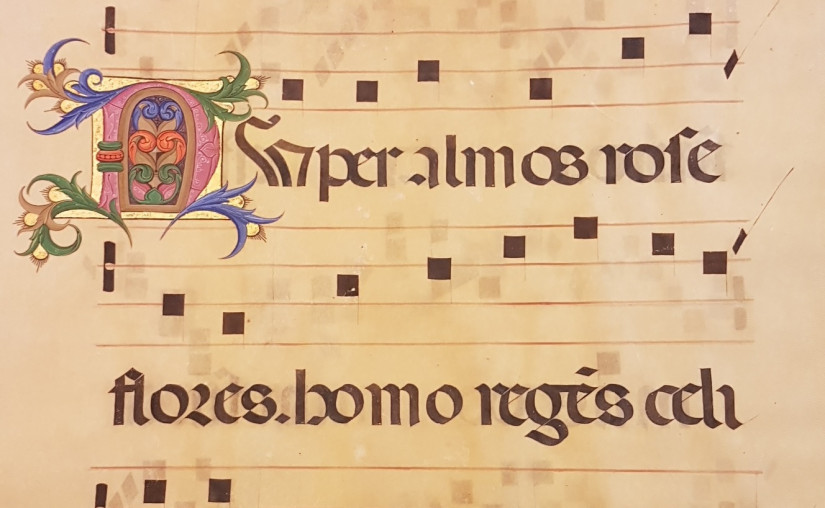 Nuper almos rose
flores. homo regēs celi